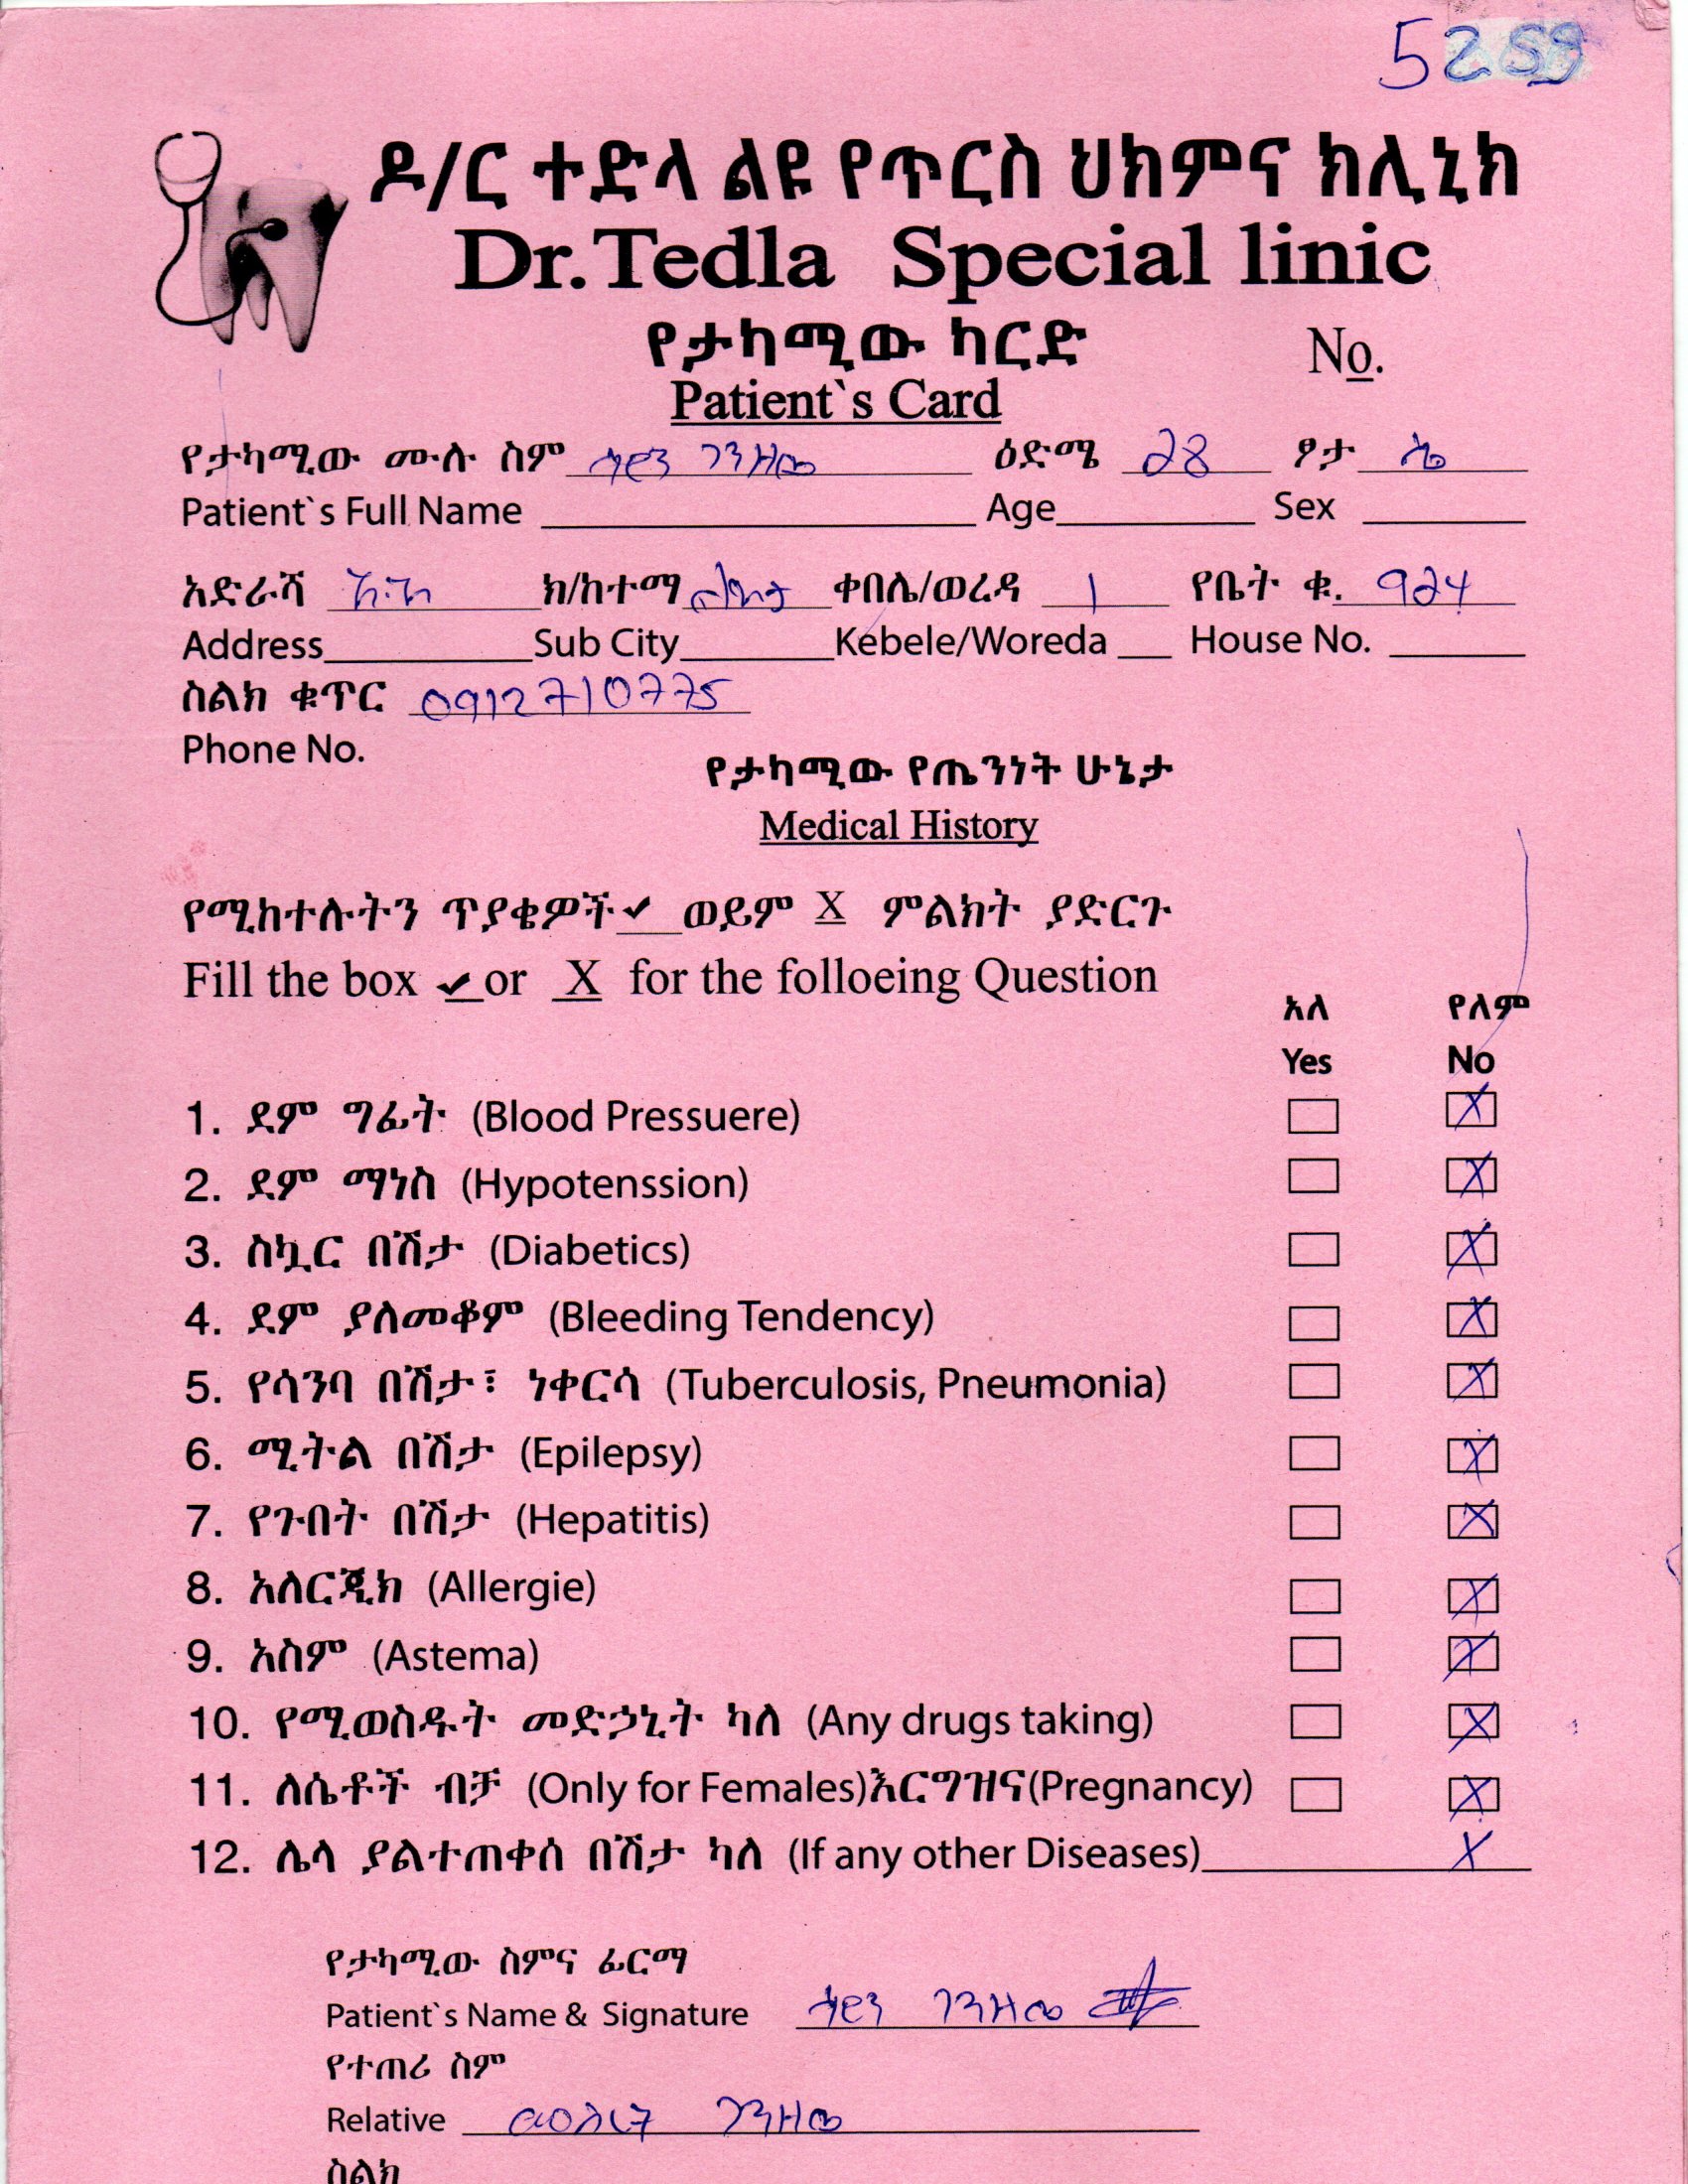 5259
ዶ/ር ተድላ ልዩ የጥርስ ህክምና ክሊኒክ
Dr.Tedla Special linic
የታካሚው ካርድ
No.
Patient`s Card
የታካሚው ሙሉ ስም ገንዘው ዕድሜ 28 ፆታ ሴ
Patient`s Full Name Age Sex
አድራሻ አ.አ ክ/ከተማ ቀበሌ/ወረዳ 1 የቤት ቁ. 924
Address Sub City Kebele/Woreda House No.
ስልክ ቁጥር 0912710775
Phone No.
የታካሚው የጤንነት ሁኔታ
Medical History
የሚከተሉትን ጥያቄዎች ✔ ወይም X ምልክት ያድርጉ
Fill the box ✔ or X for the folloeing Question
አለ የለም
Yes No
1. ደም ግፊት (Blood Pressuere) X
2. ደም ማነስ (Hypotenssion) X
3. ስኳር በሽታ (Diabetics) X
4. ደም ያለመቆም (Bleeding Tendency) X
5. የሳንባ በሽታ፣ ነቀርሳ (Tuberculosis, Pneumonia) X
6. ሚትል በሽታ (Epilepsy) X
7. የጉበት በሽታ (Hepatitis) X
8. አለርጂክ (Allergie) X
9. አስም (Astema) X
10. የሚወስዱት መድኃኒት ካለ (Any drugs taking) X
11. ለሴቶች ብቻ (Only for Females)እርግዝና(Pregnancy) X
12. ሌላ ያልተጠቀሰ በሽታ ካለ (If any other Diseases) X
የታካሚው ስምና ፊርማ
Patient`s Name & Signature ገንዘው
የተጠሪ ስም
Relative ገንዘው
ስልክ